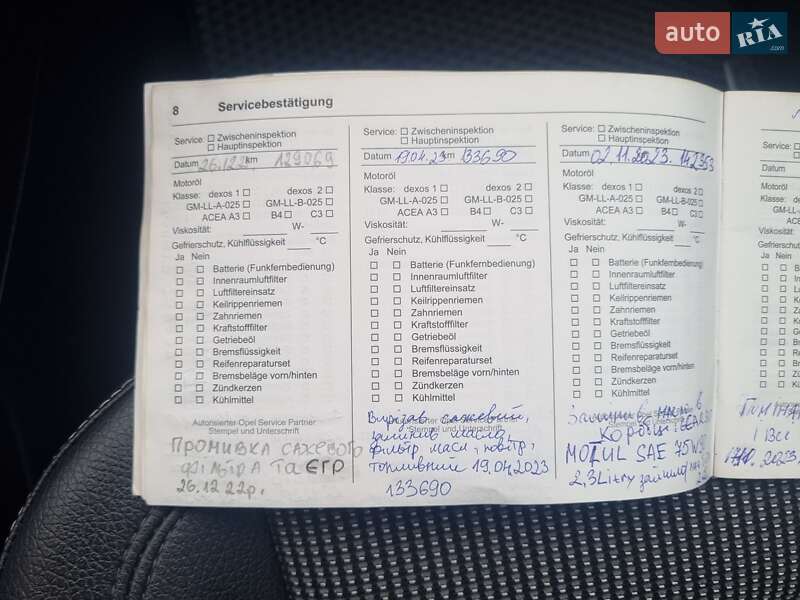 auto RIA .com
8 Servicebestätigung
Service: Zwischeninspektion
Hauptinspektion
Datum 26.12.22 km 129069
Motoröl
Klasse: dexos 1 dexos 2
GM-LL-A-025 GM-LL-B-025
ACEA A3 B4 C3
Viskosität: W-
Gefrierschutz, Kühlflüssigkeit °C
Ja Nein
Batterie (Funkfernbedienung)
Innenraumluftfilter
Luftfiltereinsatz
Keilrippenriemen
Zahnriemen
Kraftstofffilter
Getriebeöl
Bremsflüssigkeit
Reifenreparaturset
Bremsbeläge vorn/hinten
Zündkerzen
Kühlmittel
Autorisierter Opel Service Partner
Stempel und Unterschrift
ПРОМИВКА САЖЕВОГО
ФІЛЬТРА ТА ЄГР
26.12 22р.
Service: Zwischeninspektion
Hauptinspektion
Datum 19.04.23 km 133690
Motoröl
Klasse: dexos 1 dexos 2
GM-LL-A-025 GM-LL-B-025
ACEA A3 B4 C3
Viskosität: W-
Gefrierschutz, Kühlflüssigkeit °C
Ja Nein
Batterie (Funkfernbedienung)
Innenraumluftfilter
Luftfiltereinsatz
Keilrippenriemen
Zahnriemen
Kraftstofffilter
Getriebeöl
Bremsflüssigkeit
Reifenreparaturset
Bremsbeläge vorn/hinten
Zündkerzen
Kühlmittel
Autorisierter Opel Service Partner
Stempel und Unterschrift
Вирізав сажевий,
замінив масло,
фільтр масл, повітр,
топливний 19.04.2023
133690
Service: Zwischeninspektion
Hauptinspektion
Datum 02.11.2023. 142353
Motoröl
Klasse: dexos 1 dexos 2
GM-LL-A-025 GM-LL-B-025
ACEA A3 B4 C3
Viskosität: W-
Gefrierschutz, Kühlflüssigkeit °C
Ja Nein
Batterie (Funkfernbedienung)
Innenraumluftfilter
Luftfiltereinsatz
Keilrippenriemen
Zahnriemen
Kraftstofffilter
Getriebeöl
Bremsflüssigkeit
Reifenreparaturset
Bremsbeläge vorn/hinten
Zündkerzen
Kühlmittel
Stempel und Unterschrift
в
Коробці
MOTUL SAE 75W
2,3 Litry
Service:
Datum
Motoröl
Klasse:
Viskosität
Gefrierschutz
Ja Nein
2023